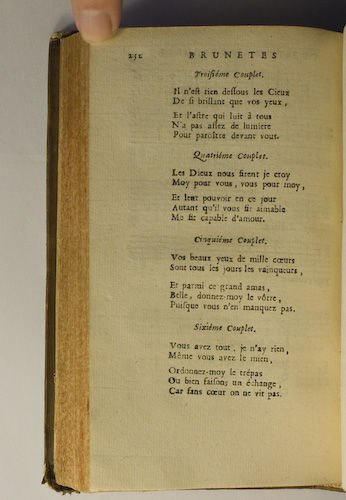 252 BRUNETES
Troisiéme Couplet.
Il n'est rien dessous les Cieux
De si brillant que vos yeux,
Et l'astre qui luit à tous
N'a pas assez de lumiere
Pour paroître devant vous.
Quatriéme Couplet.
Les Dieux nous firent je croy
Moy pour vous, vous pour moy,
Et leur pouvoir en ce jour
Autant qu'il vous fit aimable
Me fit capable d'amour.
Cinquiéme Couplet.
Vos beaux yeux de mille cœurs
Sont tous les jours les vainqueurs,
Et parmi ce grand amas,
Belle, donnez-moy le vôtre,
Puisque vous n'en manquez pas.
Sixiéme Couplet.
Vous avez tout, je n'ay rien,
Même vous avez le mien,
Ordonnez-moy le trépas
Ou bien faisons un échange,
Car sans cœur on ne vit pas.